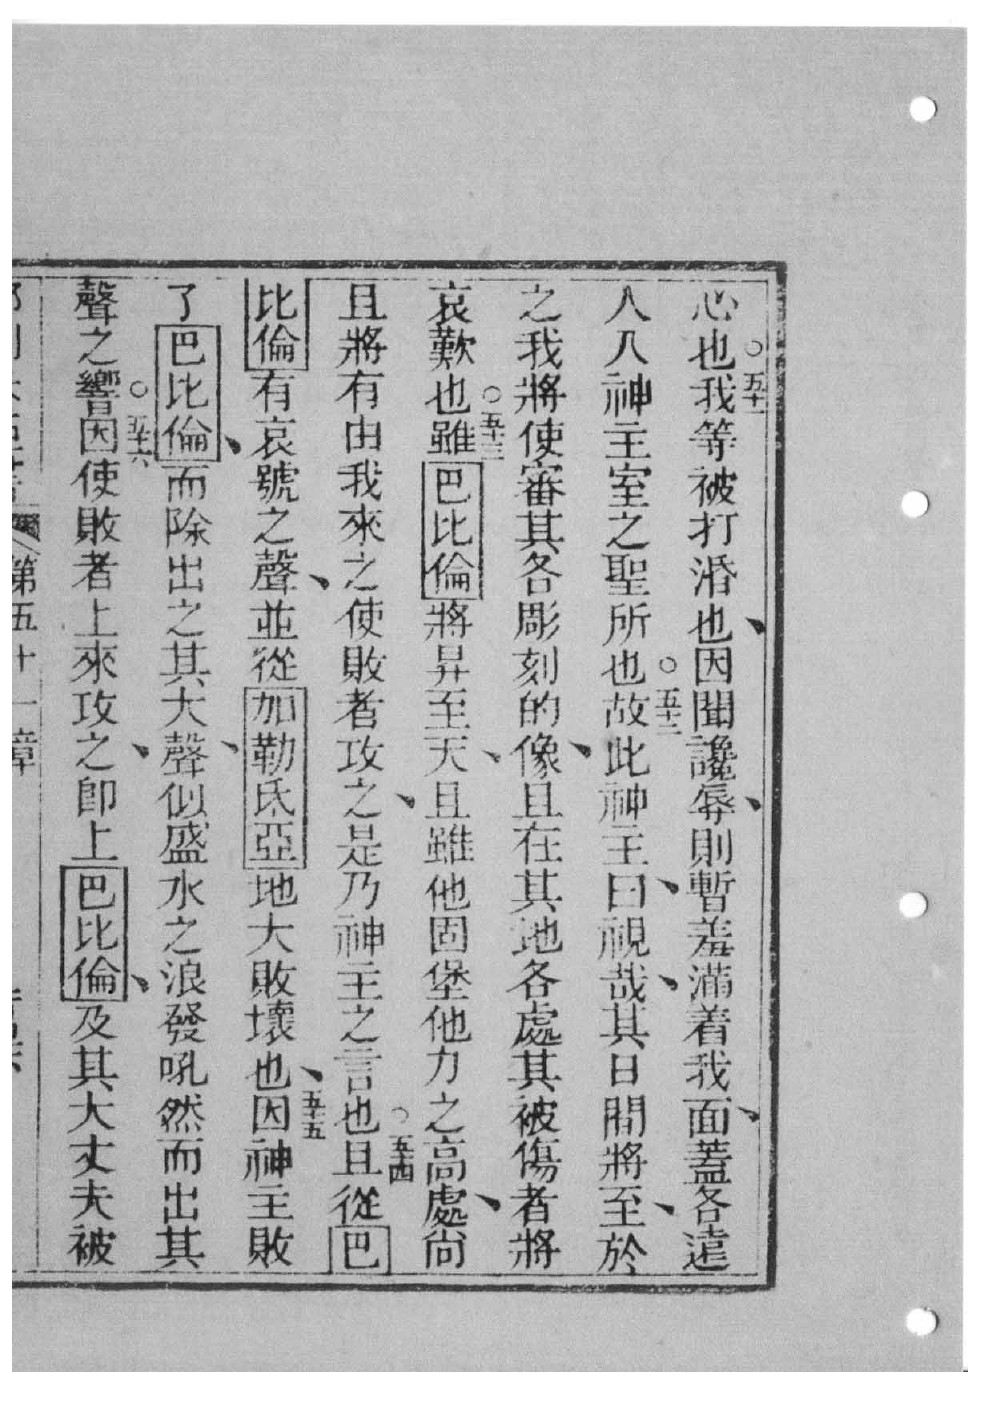 心也我等被打㨔也因聞讒辱則暫羞滿着我面蓋各遠
五十一
人入神主室之聖所也故此神主曰視哉其日間將至於
五十二
之我將使審其各彫刻的像且在其地各處其被傷者將
哀歎也雖巴比倫將昇至天且雖他固堡他力之高處尚
五十三
且將有由我來之使敗者攻之是乃神主之言也且從巴
五十四
比倫有哀號之聲並從加勒氐亞地大敗壞也因神主敗
五十五
了巴比倫而除出之其大聲似盛水之浪發吼然而出其
聲之響因使敗者上來攻之即上巴比倫及其大丈夫被
五十六
第五十一章